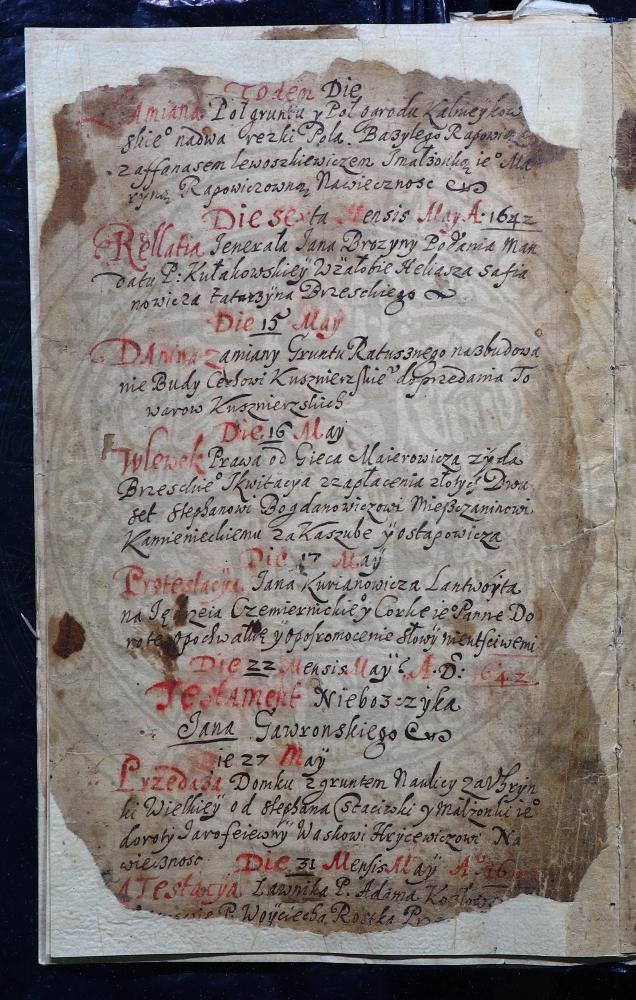 Eoden Die
Zamiana Poł gruntu y Poł ogrodu Kalmeykow
skie° nadwa rezki Pola. Bazylego Rapowi
z affanasem lewoszkiewiczem Imałżonką ie° Ma
ryną Rapowiczowną Nawiecznosc
Die sexta Mensis May A: 1642
Rellatia Jenerała Jana Brozyny Podania Man
datu P: Kułakowskieÿ Wżałobie Heliasza Safia
nowicza tatarzyna Brzeskiego
Die 15 May
DAnina zamiany Gruntu Ratusznego nazbudowa
nie Budy Cechowi Kusznierzskie° dosprzedania To
warow Kusznierzskich
Die 16 May
Wlewek Prawa od Gieca Maierowicza zyda
Brzeskie° Ikwitacya zzapłacenia złotych Dwa
set Stephanowi Bogdanowiczowi Mieszczaninowi
Kamienieckiemu za Kaszube ÿ ostapowicza
Die 17 Maÿ
Protestacya Jana Kurianowicza Lantwoyta
na Czemiernickie° ÿ Corke ie° Panne Do
rote opochwałkę ÿ oposromocenie słowÿ nieutsciwemi
Die 22 Mensis Maÿ A. D: 1642
Testament Nieboszczyka
Jana Gawronskiego
Die 27 Maÿ
Przedaża Domku zgruntem Naulicy za Uhryn
ki Wielkieÿ od Stephana Stacizki y Małżonki ie°
doroty Jarofeiewny Waskowi Hrycewiczowi Na
wiecznosc Die 31 Mensis Maÿ A°
ATestacya Ławnika P. Adama
P. Woyciecha Rostka